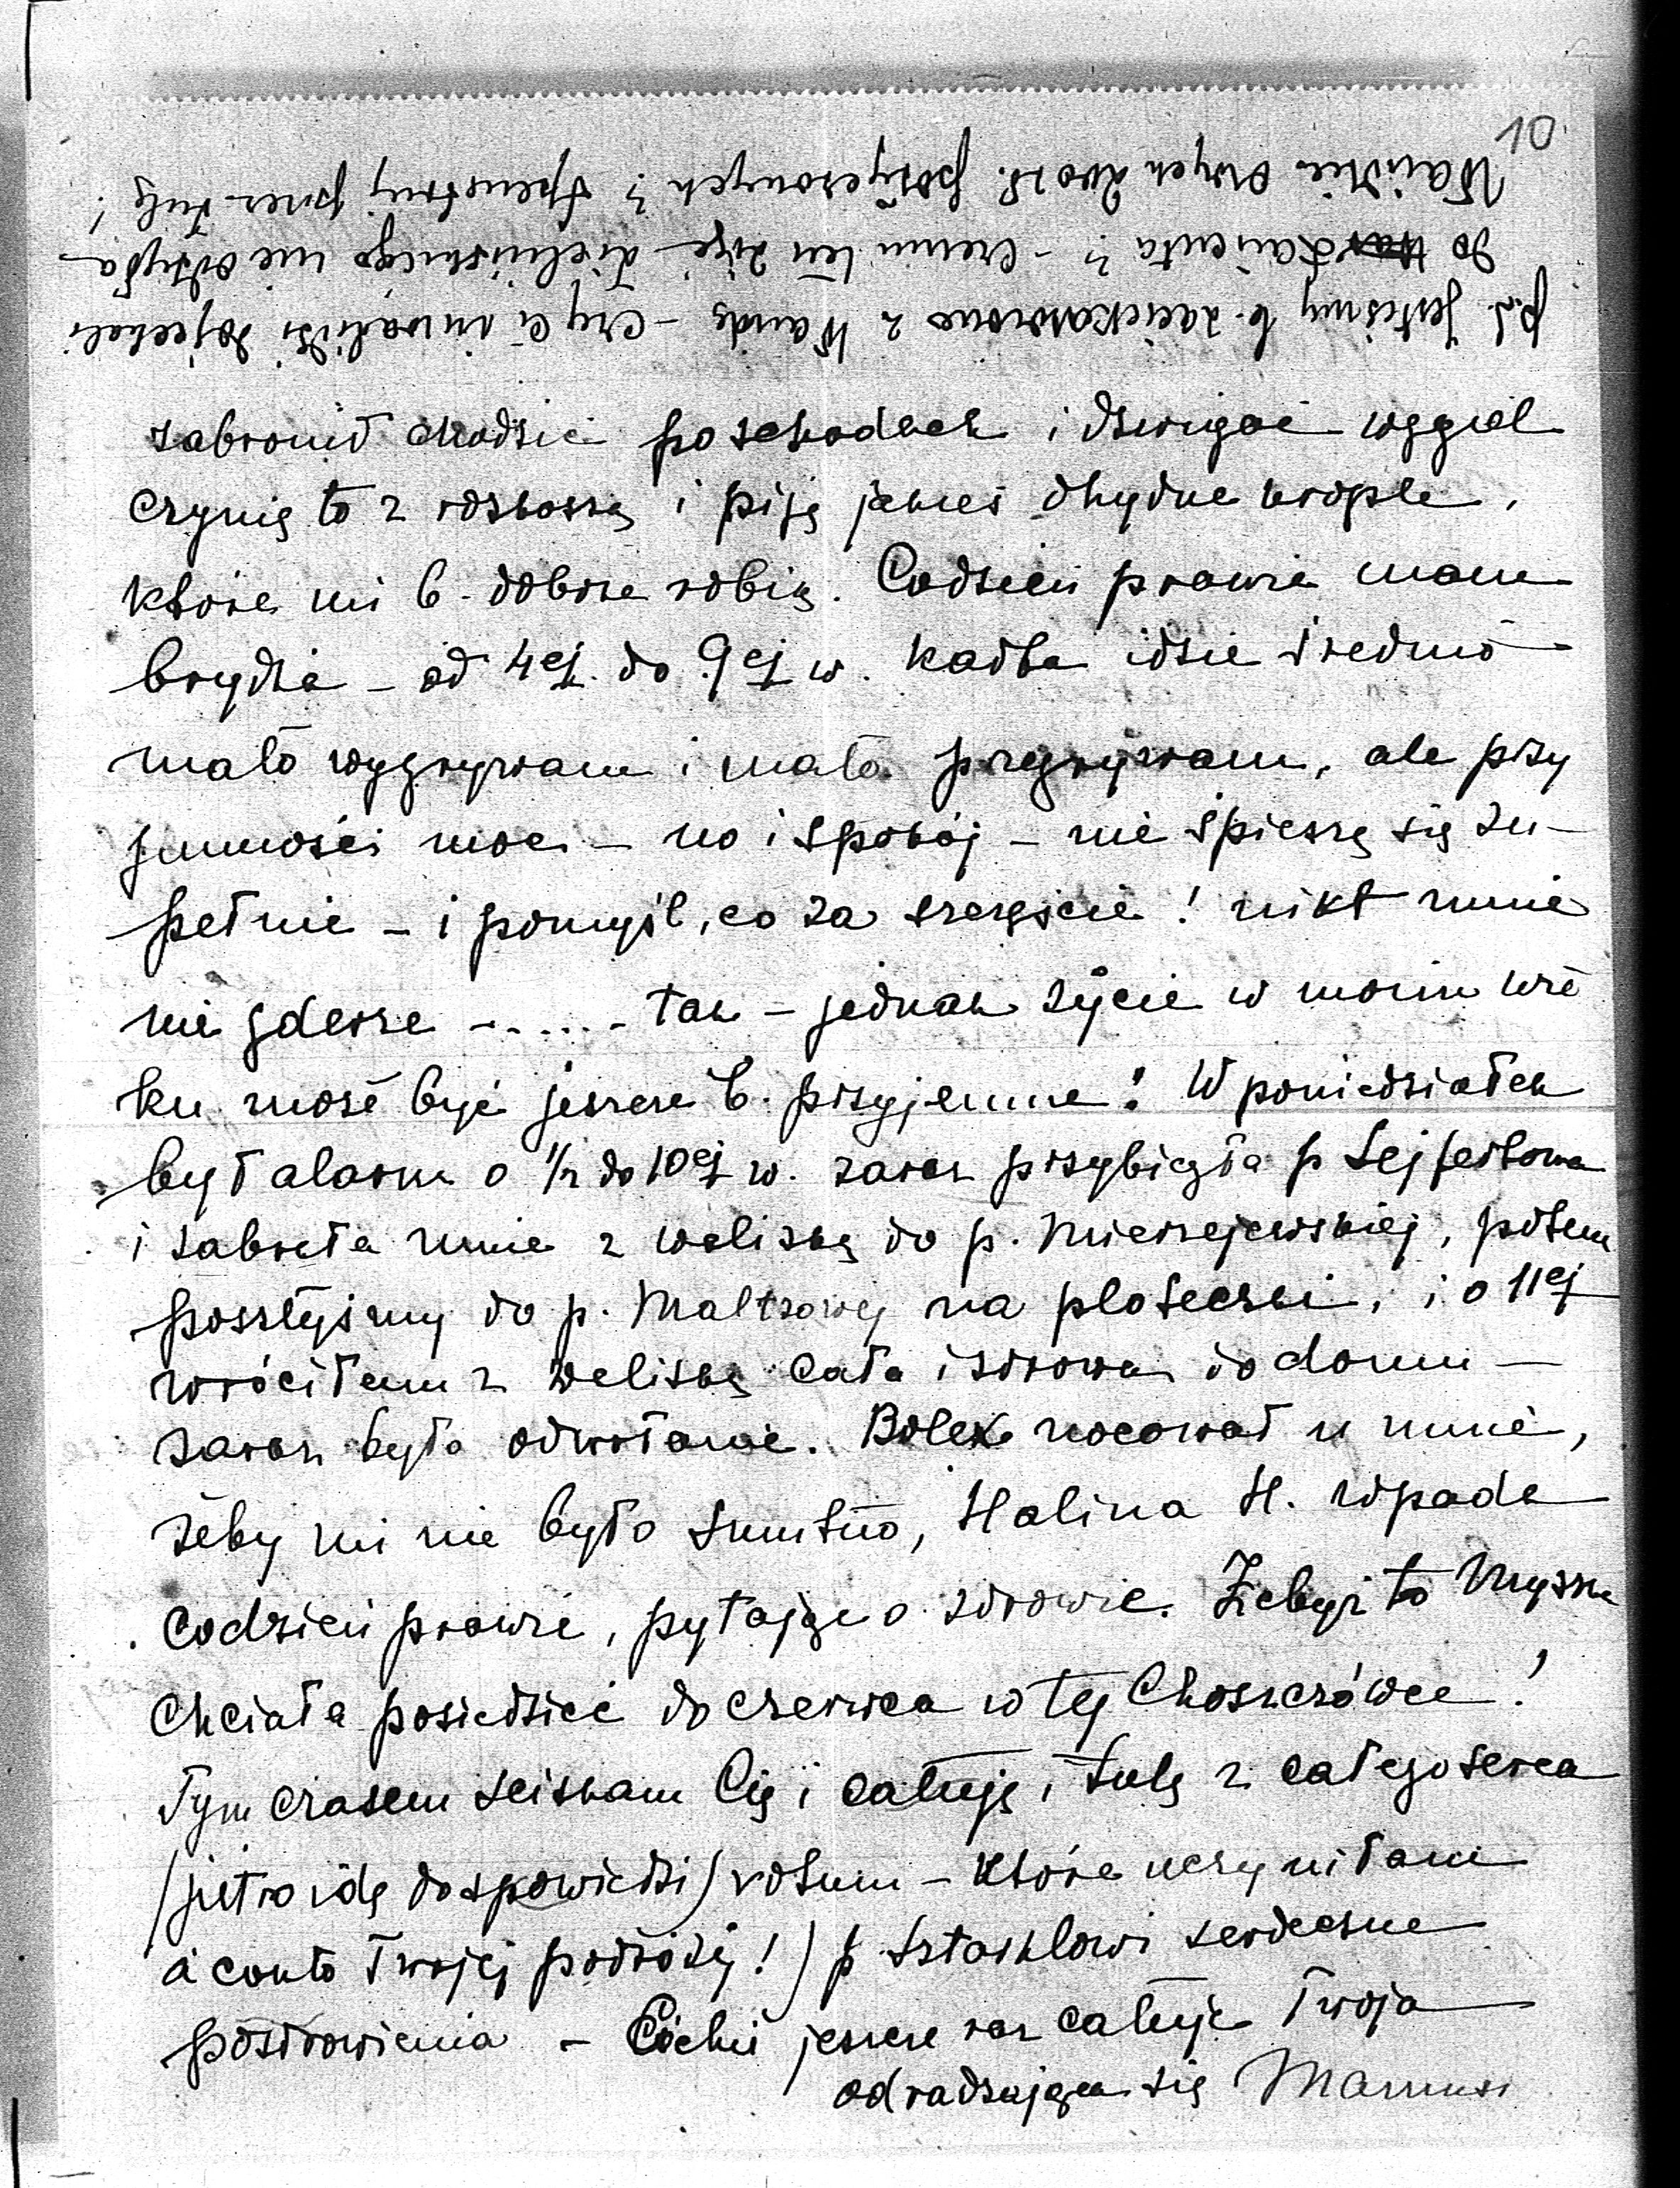 10
zabronił chodzić po schodach i dźwigać węgiel
czynię to z rozkoszą i piję jakieś ohydne krople,
które mi b. dobrze robią. Codzień prawie mam
brydża – od 4ej. do 9ej w. Karta idzie średnio
mało wygrywam i mało przegrywam, ale przy
jemności moc – no i spokój – nie śpieszę się zu-
pełnie – i pomyśl, co za szczęście! nikt mnie
nie gderze – . . . . . – tak – jednak życie w moim wie
ku może być jeszcze b. przyjemne! W poniedziałek
był alarm o 1/2 do 10ej w. zaraz przybiegła p Sejfertowa
i zabrała mnie z walizką do p. Mierzejewskiej, potem
poszłyśmy do p. Maltzowej na ploteczki, i o 11ej
wróciłam z walizką cała i zdrowa do domu –
zaraz było odwołanie. Bolek nocował u mnie,
żeby mi nie było smutno, Halina H. wpada
codzień prawie, pytając o zdrowie. Żebyż to Myszka
chciała posiedzieć do czerwca w tej Choszczówce!
Tym czasem ściskam Cię i całuję i tulę z całego serca
(jutro idę do spowiedzi) votum – które uczyniłam
à conto Twojej podróży!) p Sztarklowi serdeczne
pozdrowienia – Cichu jeszcze raz całuję Twoja
odradzająca się Mamusi
p.s. Jesteśmy b. zaciekawione z Wandą – czy ci inwalidzi dojechali
do Łańcuta? – czemu ten dzielnicowego nie odsyła
Wandzie owych 200 zł. pożyczonych? przez Tulę!